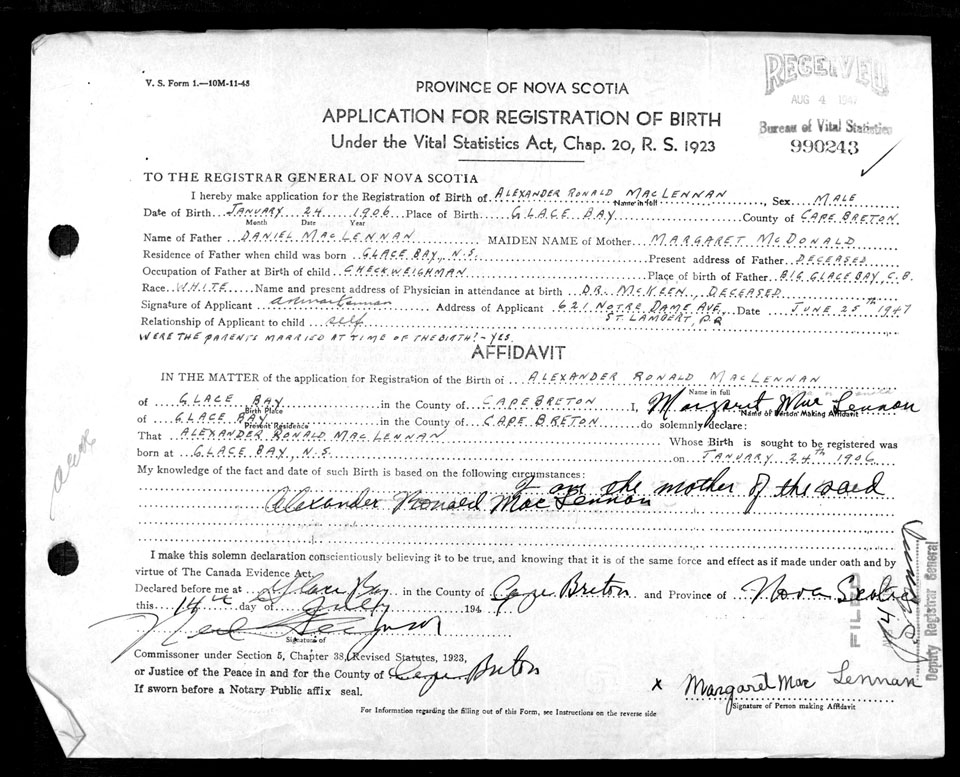 V. S. Form 1.—10M-11-43
PROVINCE OF NOVA SCOTIA
APPLICATION FOR REGISTRATION OF BIRTH
Under the Vital Statistics Act, Chap. 20, R. S. 1923
RECEIVED
AUG 4 1947
Bureau of Vital Statistics
990243
TO THE REGISTRAR GENERAL OF NOVA SCOTIA
I hereby make application for the Registration of Birth of ALEXANDER RONALD MACLENNAN, Sex MALE
Name in full
Date of Birth JANUARY 24 1906 Place of Birth GLACE BAY County of CAPE BRETON
Month Date Year
Name of Father DANIEL MACLENNAN MAIDEN NAME of Mother MARGARET MCDONALD
Residence of Father when child was born GLACE BAY, N.S. Present address of Father DECEASED
Occupation of Father at Birth of child CHECKWEIGHMAN Place of birth of Father BIG GLACE BAY, C.B.
Race WHITE Name and present address of Physician in attendance at birth DR. MCKEEN, DECEASED
Signature of Applicant Address of Applicant 621 NOTRE DAME AVE, Date JUNE 25TH 1947
ST. LAMBERT, P.Q
Relationship of Applicant to child self
WERE THE PARENTS MARRIED AT TIME OF THE BIRTH? - YES.
AFFIDAVIT
IN THE MATTER of the application for Registration of the Birth of ALEXANDER RONALD MACLENNAN
Name in full
of GLACE BAY in the County of CAPE BRETON I, Margaret Mac Lennan
Birth Place Name of Person Making Affidavit
of GLACE BAY in the County of CAPE BRETON do solemnly declare:
Present Residence
That ALEXANDER RONALD MACLENNAN Whose Birth is sought to be registered was
born at GLACE BAY, N.S. on JANUARY 24TH 1906
My knowledge of the fact and date of such Birth is based on the following circumstances:
I am the mother of the said
Alexander Ronald Mac Lennan
I make this solemn declaration conscientiously believing it to be true, and knowing that it is of the same force and effect as if made under oath and by
virtue of The Canada Evidence Act.
Declared before me at Glace Bay in the County of Cape Breton and Province of Nova Scotia
this 14th day of July 194
Neil Ferguson
Signature of
Commissioner under Section 5, Chapter 38, (Revised Statutes, 1923,
or Justice of the Peace in and for the County of Cape Breton
If sworn before a Notary Public affix seal.
x Margaret Mac Lennan
Signature of Person making Affidavit
For Information regarding the filling out of this Form, see Instructions on the reverse side
FILED
Deputy Registrar General